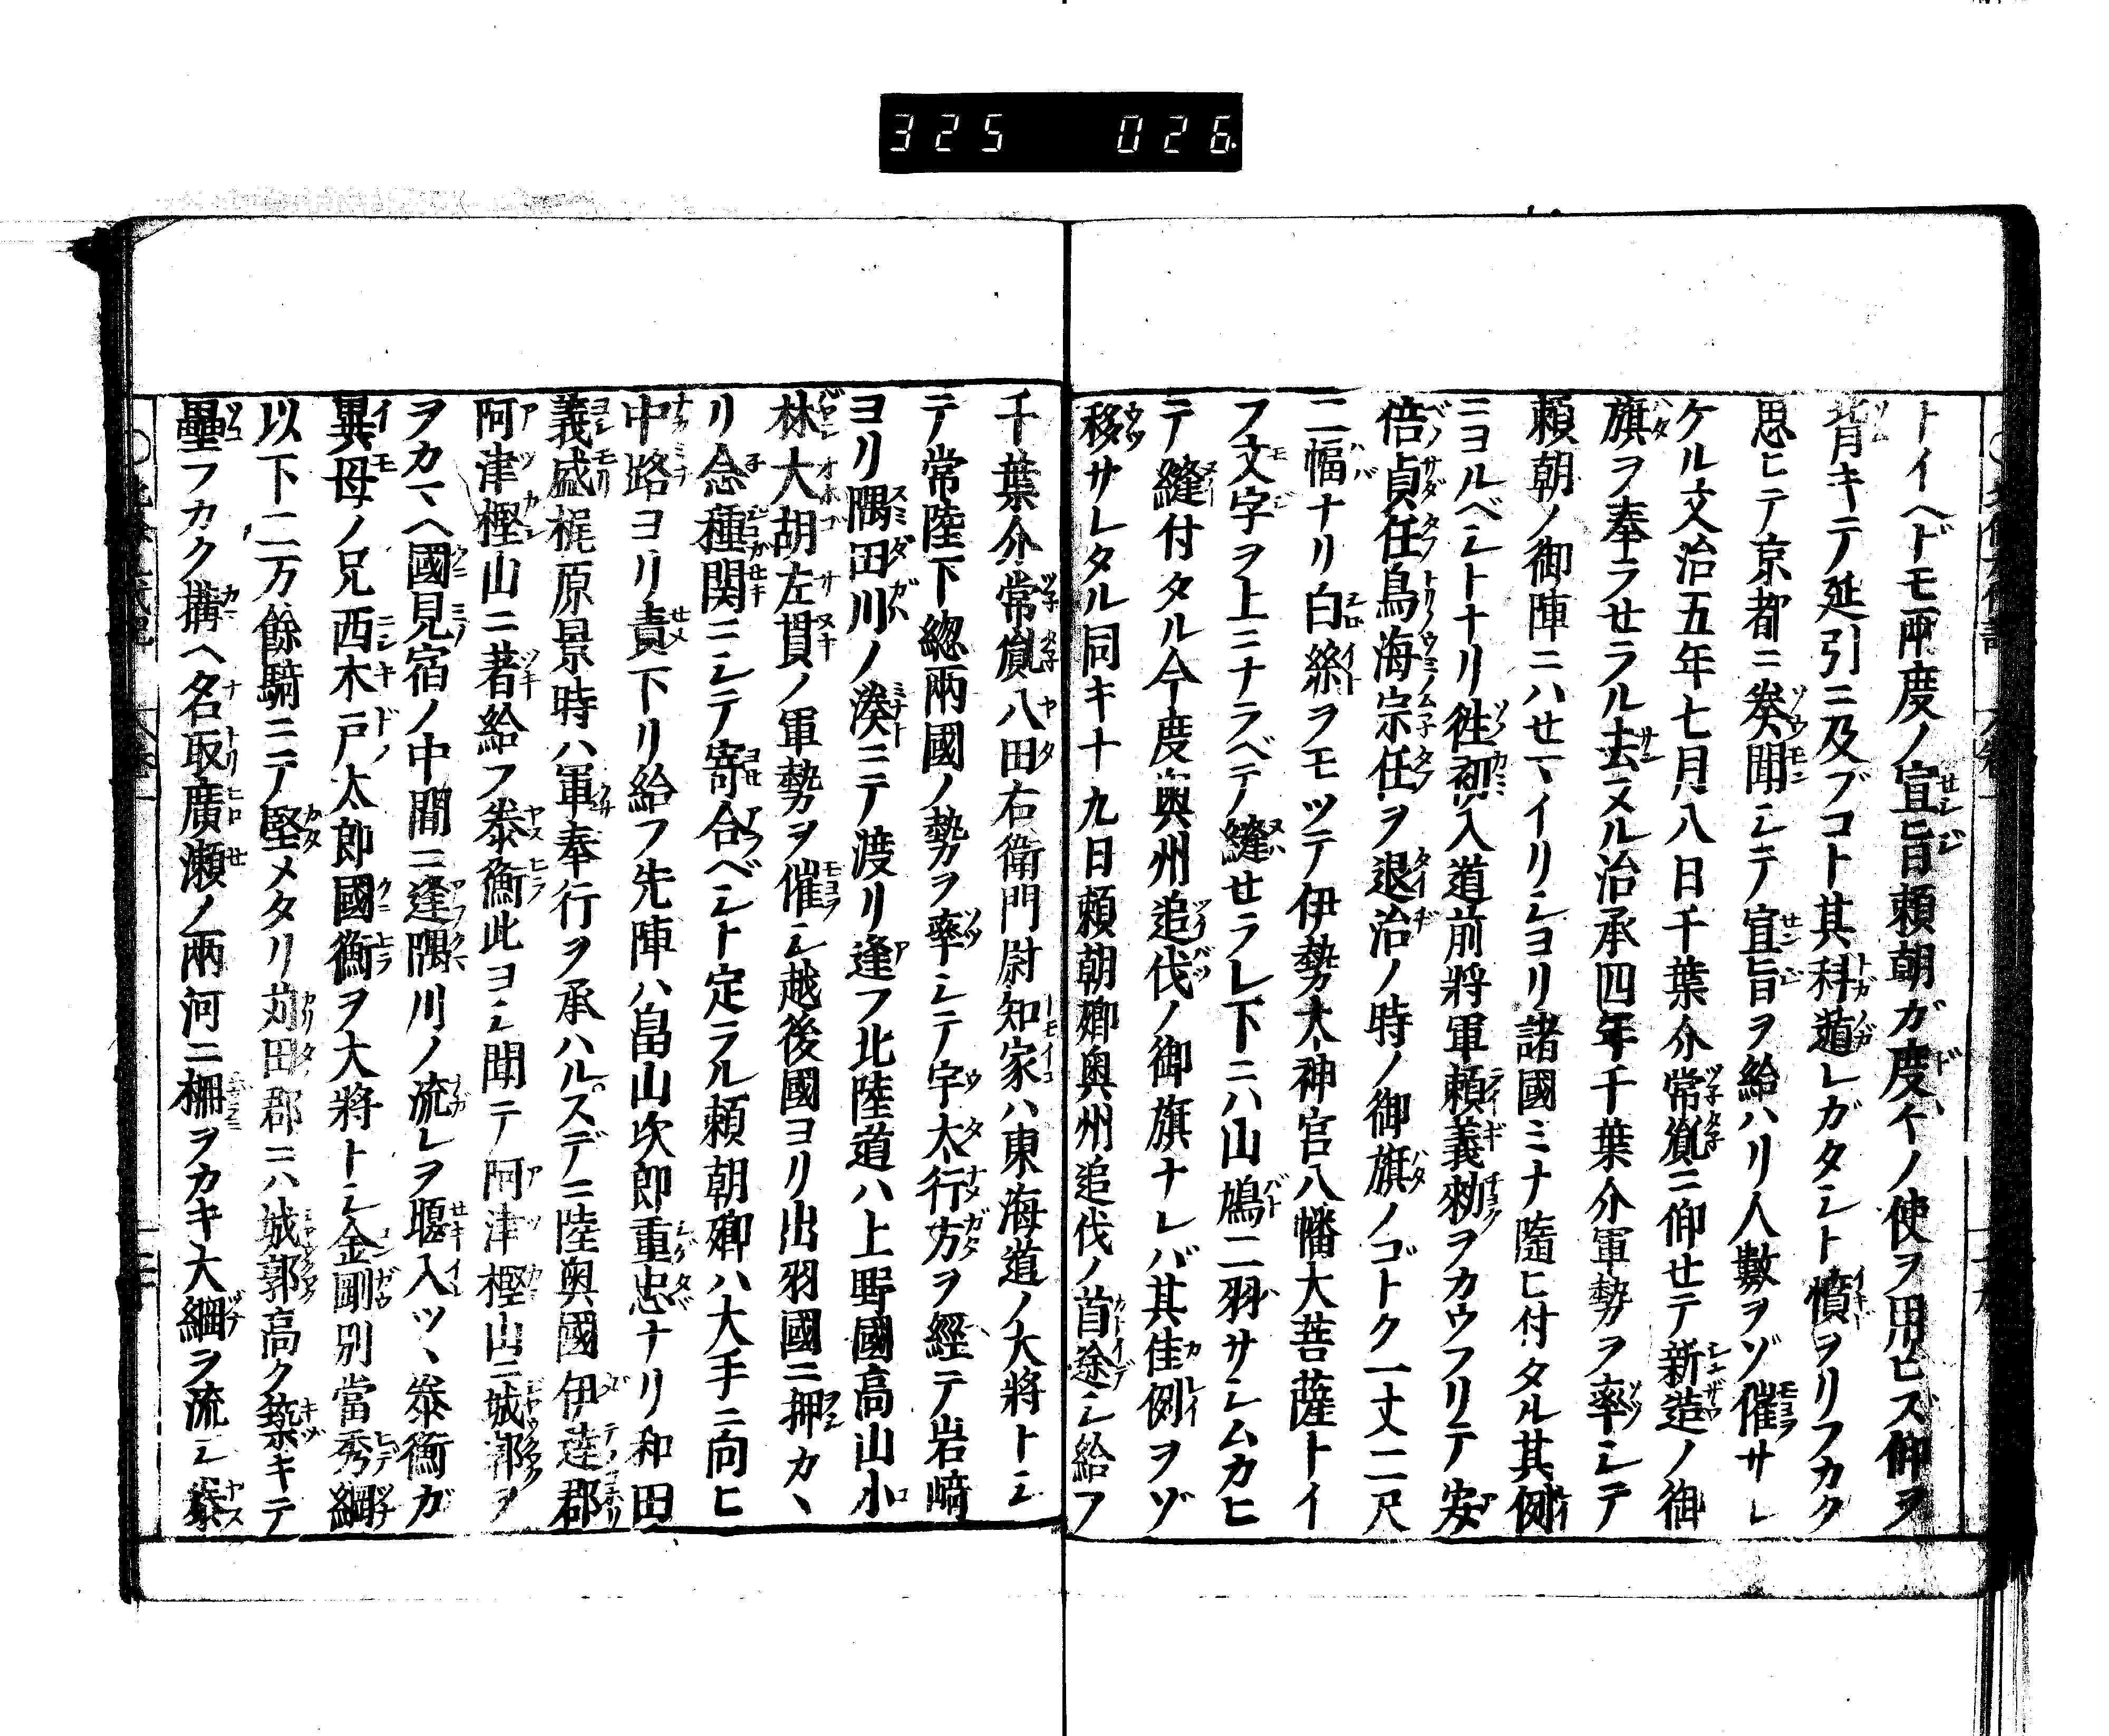 325 026
トイヘドモ兩度ノ宣旨頼朝ガ度々ノ使ヲ用ヒズ仰ヲ
背キテ延引ニ及ブコト其科遁レガタシト憤ヲリフカク
思ヒテ京都ニ奏聞シテ宣旨ヲ給ハリ人數ヲゾ催サレ
ケル文治五年七月八日千葉介常胤ニ仰セテ新造ノ御
旗ヲ奉ラセラル去ヌル治承四年千葉介軍勢ヲ率シテ
頼朝ノ御陣ニハセマイリシヨリ諸國ミナ隨ヒ付タル其例
ニヨルベシトナリ徃初入道前將軍頼義勅ヲカウフリテ安
倍貞任鳥海宗任ヲ退治ノ時ノ御旗ノゴトク一丈二尺
二幅ナリ白絲ヲモツテ伊勢大神宮八幡大菩薩トイ
フ文字ヲ上ニナラベテ縫セラレ下ニハ山鳩二羽サシムカヒ
テ縫付タル今度奥州追伐ノ御旗ナレバ其佳例ヲゾ
移サレタル同キ十九日頼朝卿奥州追伐ノ首途シ給フ
千葉介常胤八田右衛門尉知家ハ東海道ノ大將トシ
テ常陸下總兩國ノ勢ヲ率シテ宇太行方ヲ經テ岩﨑
ヨリ隅田川ノ湊ニテ渡リ逢フ北陸道ハ上野國高山小
林大胡左貫ノ軍勢ヲ催シ越後國ヨリ出羽國ニ押カヽ
リ念種関ニシテ寄合ベシト定ラル頼朝卿ハ大手ニ向ヒ
中路ヨリ責下リ給フ先陣ハ畠山次郎重忠ナリ和田
義盛梶原景時ハ軍奉行ヲ承ハル。スデニ陸奥國伊達郡
阿津樫山ニ著給フ泰衡此ヨシ聞テ阿津樫山ニ城郭ヲ
ヲカマヘ國見宿ノ中間ニ逢隅川ノ流レヲ堰入ツヽ泰衡ガ
異母ノ兄西木戸太郎國衡ヲ大將トシ金剛別當秀綱
以下二万餘騎ニテ堅メタリ苅田郡ニハ城郭高ク築キテ
壘フカク搆ヘ名取廣瀬ノ兩河ニ柵ヲカキ大綱ヲ流シ泰